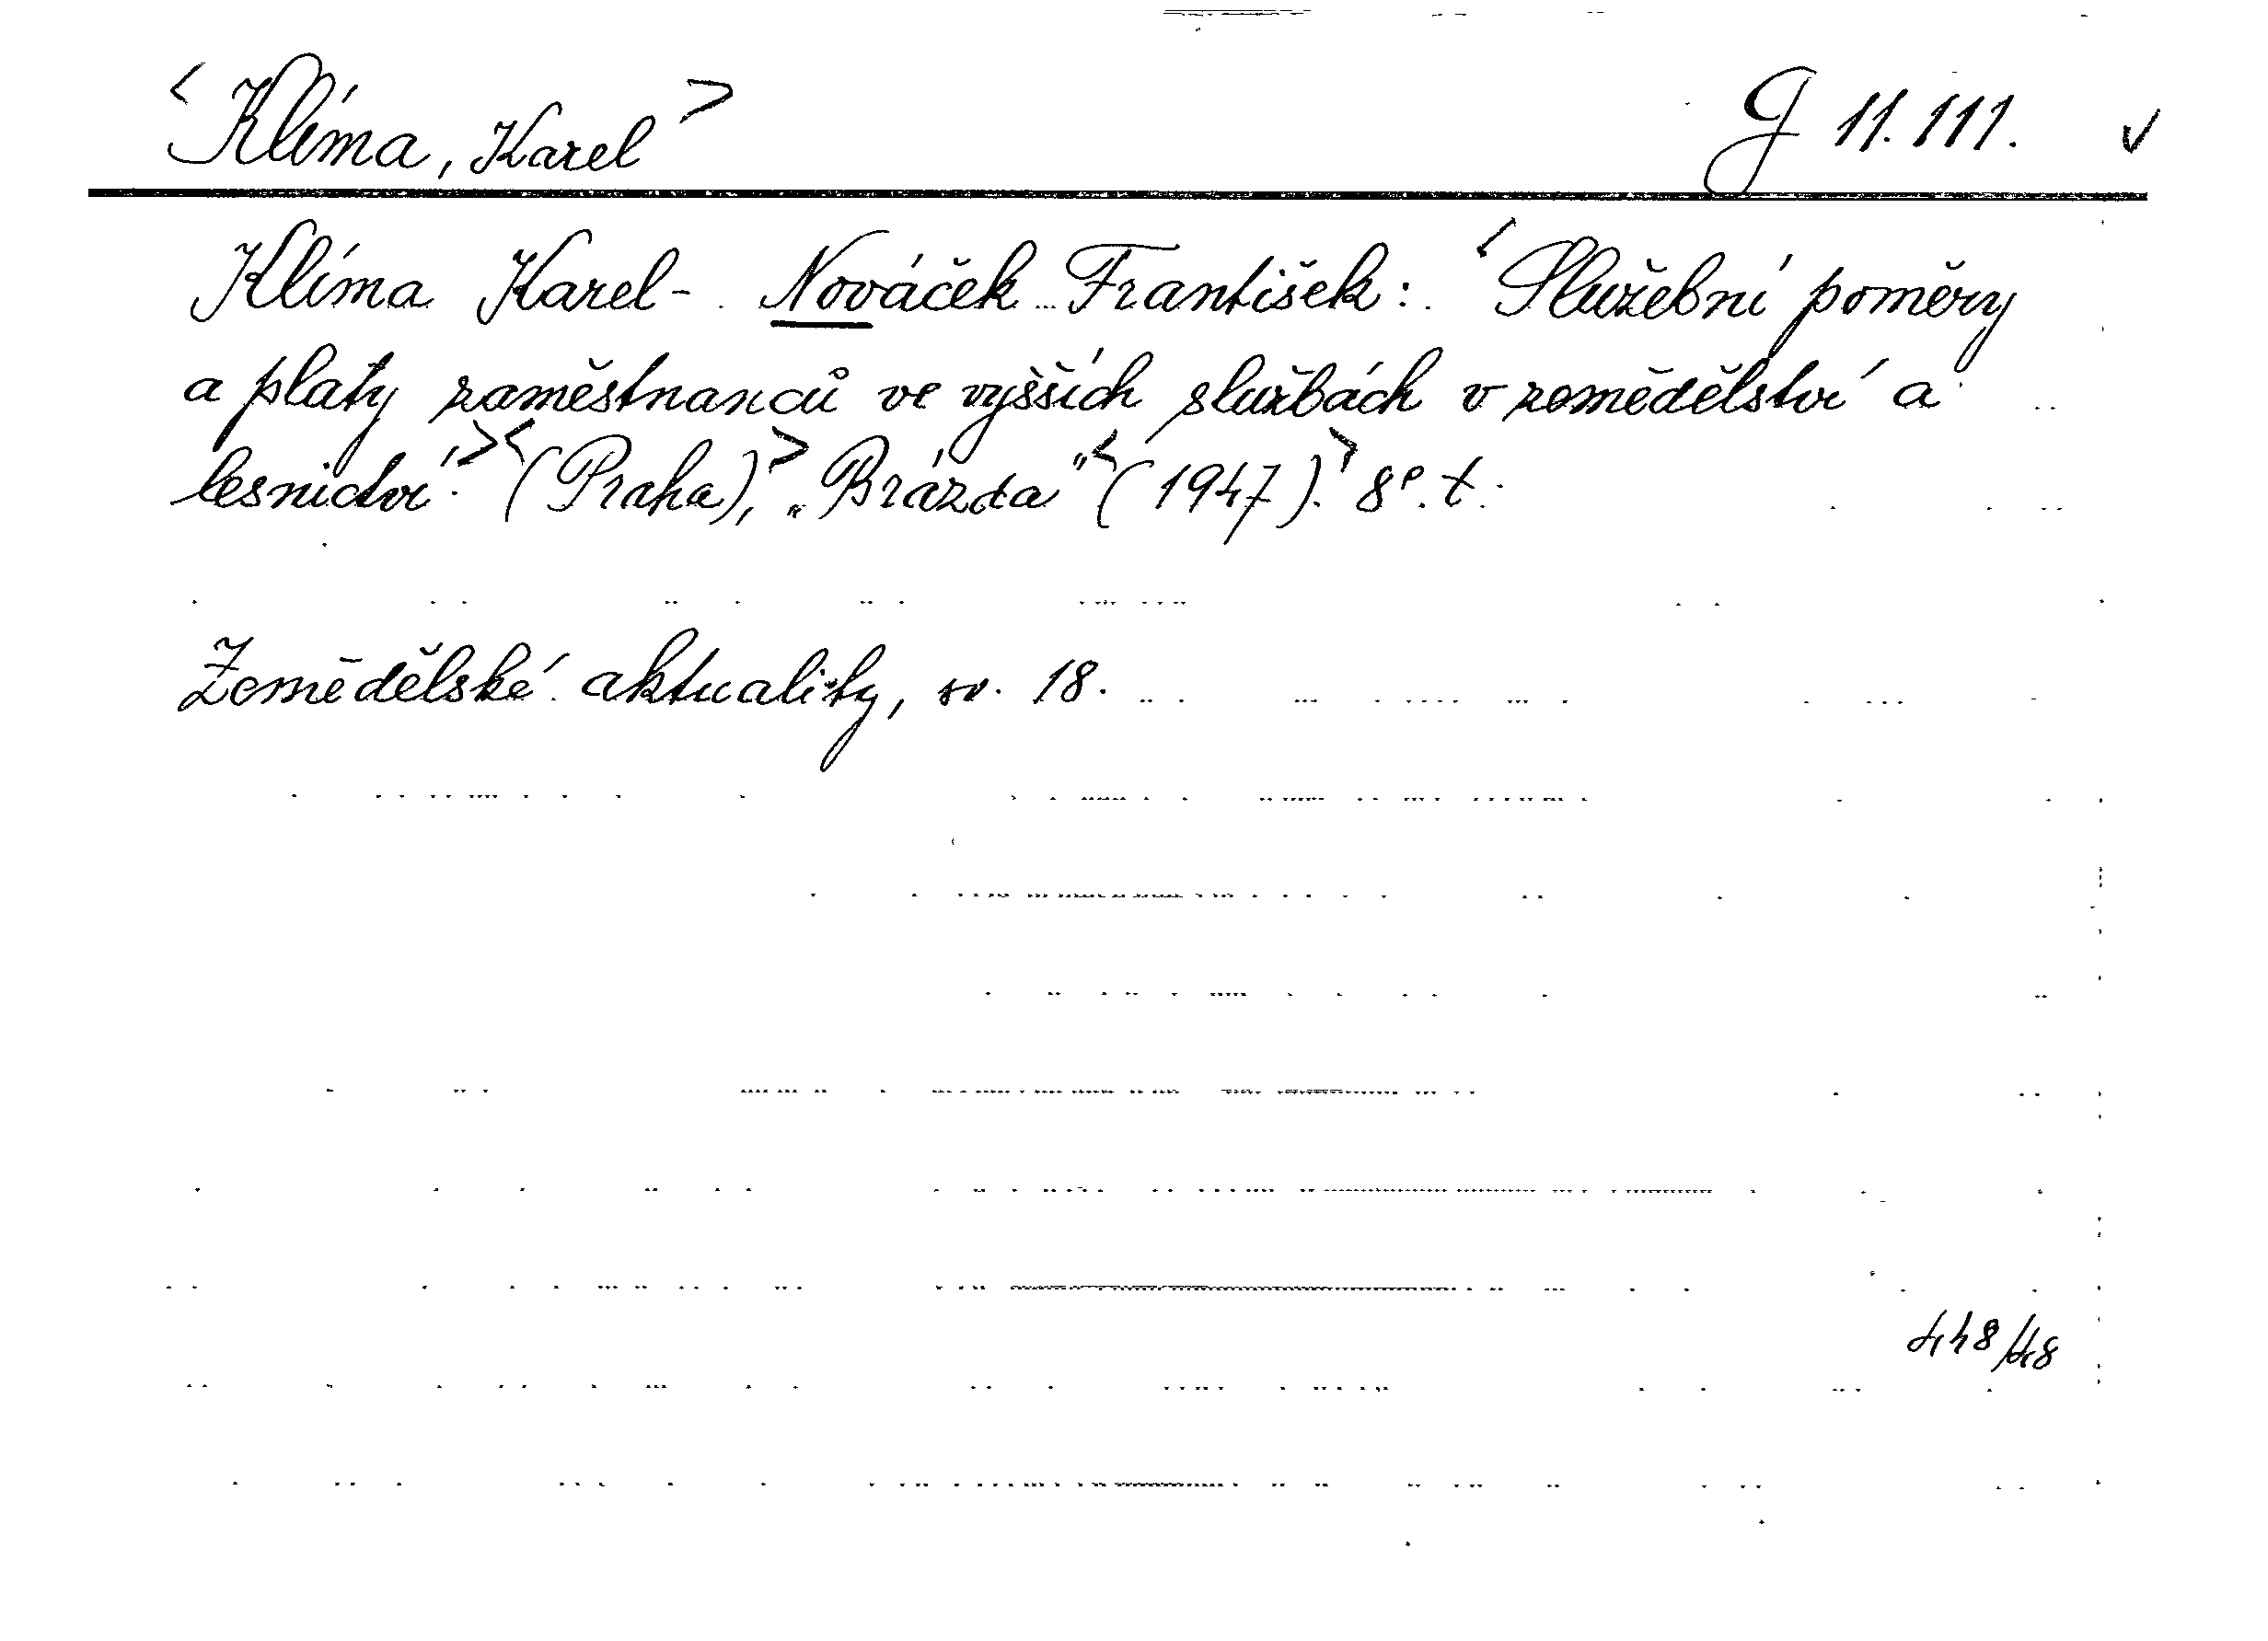 <Klíma, Karel> G 11.111. v
Klíma Karel - Nováček František: <Služební poměry
a platy zaměstnanců ve vyšších službách v zemědělství a
lesnictví.><(Praha),> „Brázda"<(1947).> 8°. t.
Zemědělské aktuality, sv. 18.
448/48